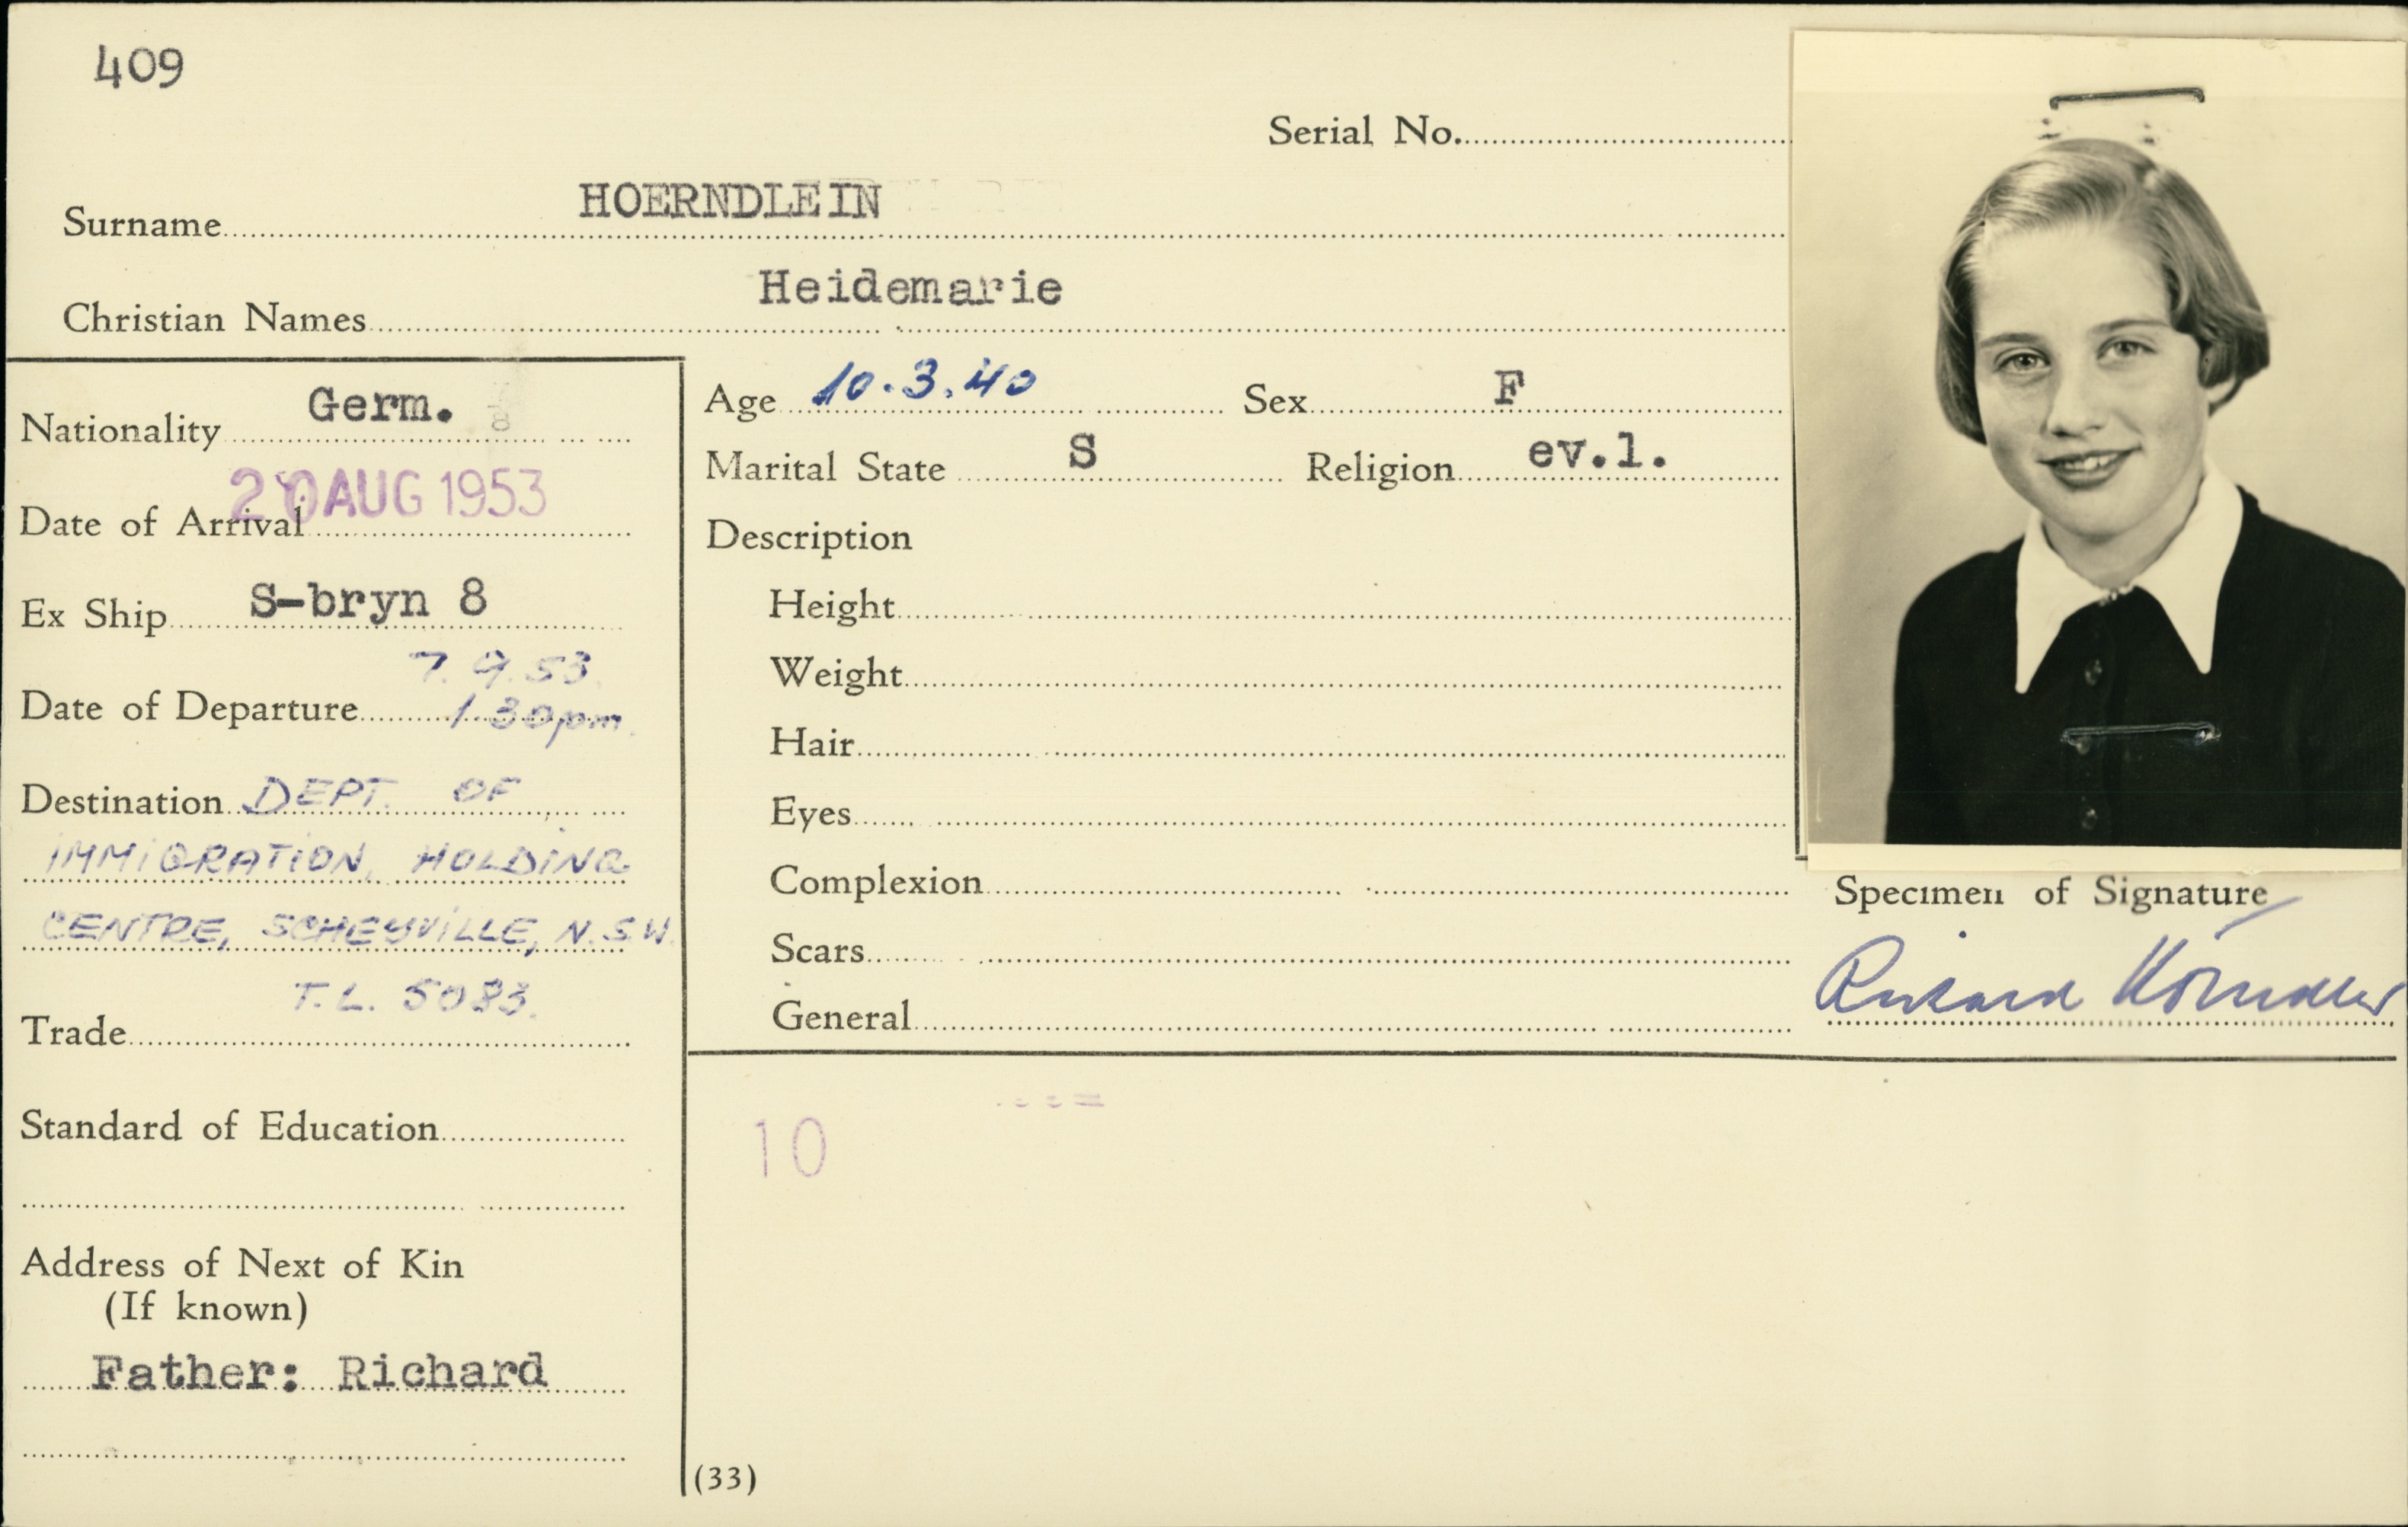 409
Serial No.
Surname HOERNDLEIN
Christian Names Heidemarie
Nationality Germ.
Date of Arrival 20 AUG 1953
Ex Ship S-bryn 8
7.9.53.
Date of Departure 1.30pm.
Destination DEPT. OF
IMMIGRATION, HOLDING
CENTRE, SCHEYVILLE, N.S.W.
T.L. 5083.
Trade
Standard of Education
Address of Next of Kin
(If known)
Father: Richard
Age 10.3.40 Sex F
Marital State S Religion ev.l.
Description
Height
Weight
Hair
Eyes
Complexion
Scars
General
Specimen of Signature
Richard
10
(33)